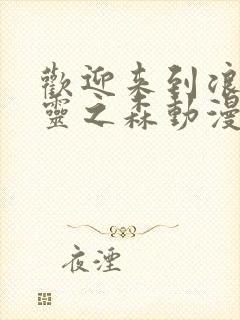 歡迎来到浪
靈之森動漫
夜湮